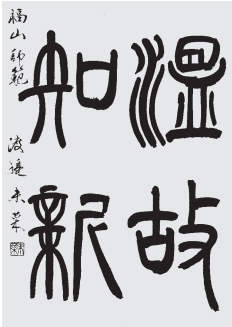 温故
知新
福山師範 渡邊